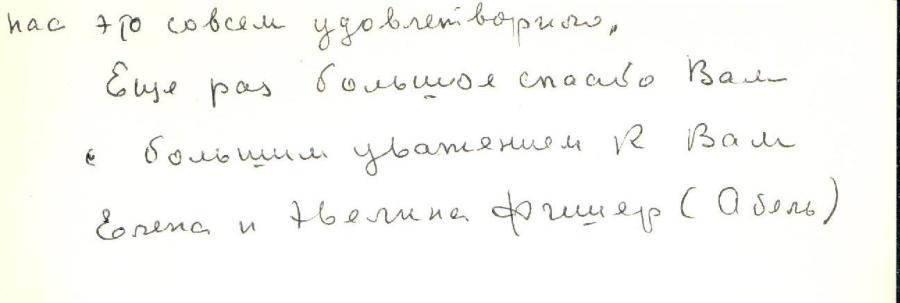 нас это совсем удовлетворило,
Еще раз большое спасибо Вам
с большим уважением к Вам
Елена и Эвелина Фишер (Абель)